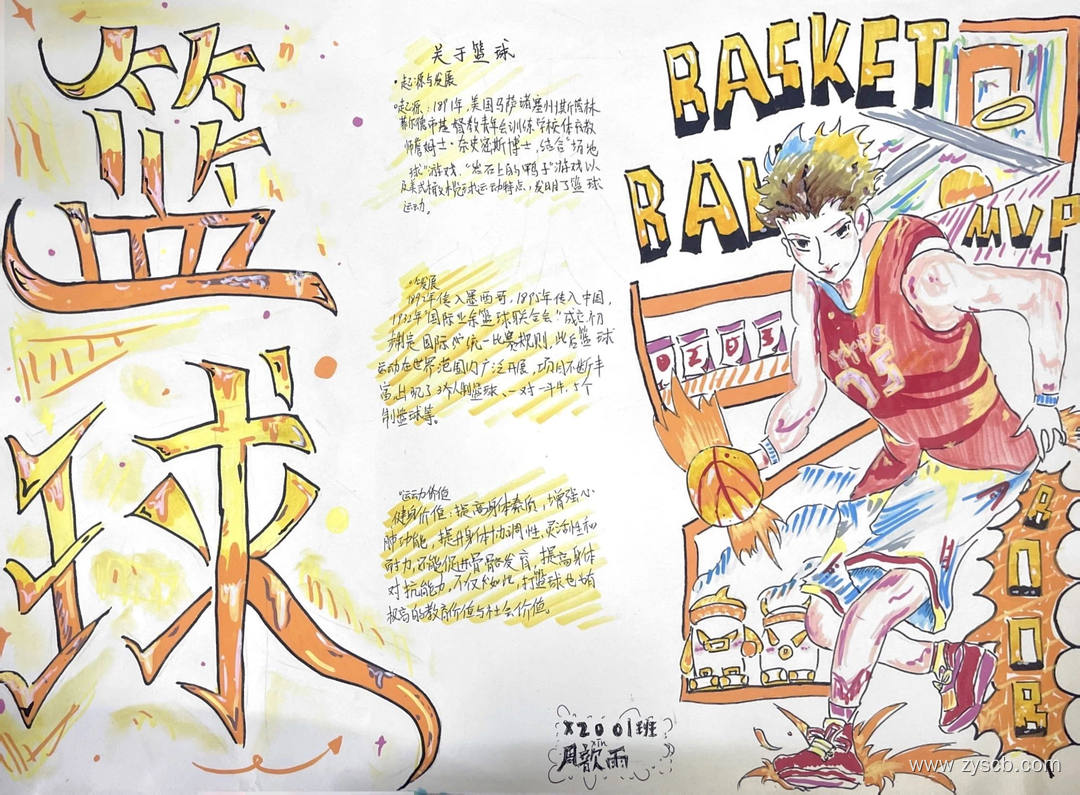 篮球
关于篮球
·起源与发展
·起源:1891年,美国马萨诸塞州斯普林
菲尔德市基督教青年会训练学校体育教
师詹姆士·奈史密斯博士,结合"场地
球"游戏,"岩石上的鸭子"游戏以
运动。
·发展
1892年传入墨西哥,1895年传入中国,
1932年"国际业余篮球联合会"成立初
制定国际性统一比赛规则,此后篮球
运动在世界范围内广泛开展,项目不断丰
富,出现了3个人制篮球、一对一斗牛、5个
制篮球等。
·运动价值
健身价值:提高身体素质,增强心
肺功能,提升身体协调性、灵活性和
耐力,还能促进骨骼发育,提高身体
对抗能力,不仅如此,打篮球也有
极高的教育价值与社会价值。
X2001班
xin
周歆雨
BASKET
BA
MVP
05
www.zyscb.com